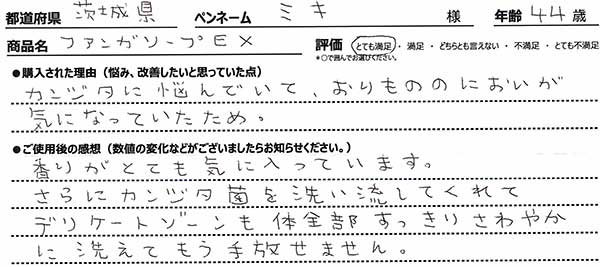 都道府県 茨城県 ペンネーム ミキ 様 年齢 44 歳
商品名 ファンガソープEX 評価 とても満足・満足・どちらとも言えない・不満足・とても不満足
*○で囲んでお選びください。
●購入された理由（悩み、改善したいと思っていた点）
カンジタに悩んでいて、おりもののにおいが
気になっていたため。
●ご使用後の感想（数値の変化などがございましたらお知らせください。）
香りがとても気に入っています。
さらにカンジタ菌を洗い流してくれて
デリケートゾーンも体全部すっきりさわやか
に洗えてもう手放せません。